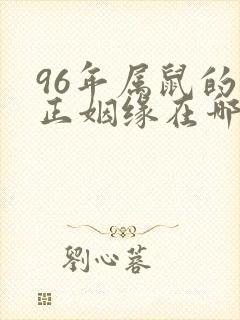 96年属鼠的
正姻缘在哪
劉心蓉